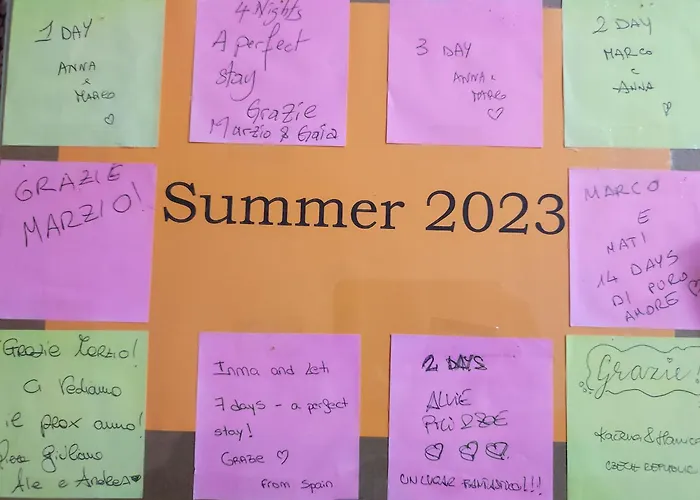 1 DAY
ANNA
e
MARCO
4 Nights
A perfect
stay
Grazie
Marzio & Gaia
3 DAY
ANNA e
MARCO
2 DAY
MARCO
e
ANNA
GRAZIE
MARZIO!
Summer 2023
MARCO
E
NATI
14 DAYS
DI PURO
AMORE
Grazie Marzio!
Ci Vediamo
il prox anno!
Giuliano
Ale e Andrea
Inma and Leti
7 days - a perfect
stay!
GRAZIE
From Spain
2 DAYS
ALLIE
UN LUGAR FANTASTICO!!!
Grazie!
CZECH REPUBLIC